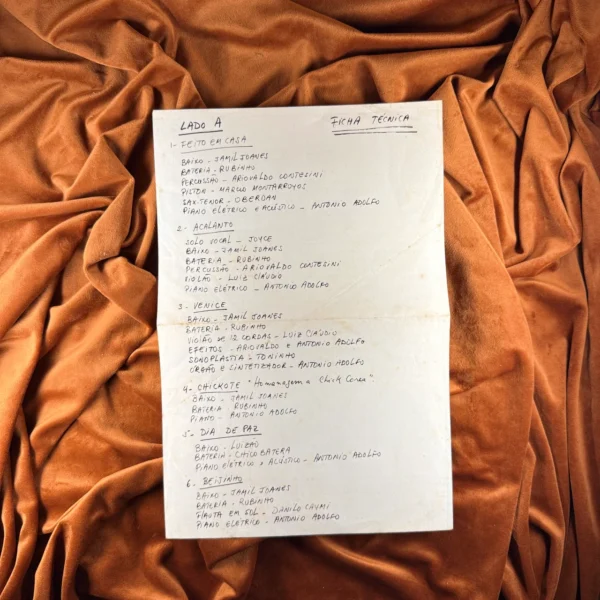 LADO A
FICHA TÉCNICA
1- FEITO EM CASA
BAIXO - JAMIL JOANES
BATERIA - RUBINHO
PERCUSSÃO - ARIOVALDO CONTESINI
PISTON - MARCIO MONTARROYOS
SAX-TENOR - OBERDAN
PIANO ELÉTRICO e ACÚSTICO - ANTONIO ADOLFO
2- ACALANTO
SOLO VOCAL - JOYCE
BAIXO - JAMIL JOANES
BATERIA - RUBINHO
PERCUSSÃO - ARIOVALDO CONTESINI
VIOLÃO - LUIZ CLÁUDIO
PIANO ELÉTRICO - ANTONIO ADOLFO
3- VENICE
BAIXO - JAMIL JOANES
BATERIA - RUBINHO
VIOLÃO DE 12 CORDAS - LUIZ CLÁUDIO
EFEITOS - ARIOVALDO E ANTONIO ADOLFO
SONOPLASTIA - TONINHO
ORGÃO E SINTETIZADOR - ANTONIO ADOLFO
4- CHICKOTE "Homenagem a Chick Corea"
BAIXO - JAMIL JOANES
BATERIA RUBINHO
PIANO - ANTONIO ADOLFO
5- DIA DE PAZ
BAIXO - LUIZÃO
BATERIA - CHICO BATERA
PIANO ELÉTRICO e ACÚSTICO - ANTONIO ADOLFO
6- BEIJINHO
BAIXO - JAMIL JOANES
BATERIA - RUBINHO
FLAUTA EM SOL - DANILO CAYMI
PIANO ELÉTRICO - ANTONIO ADOLFO